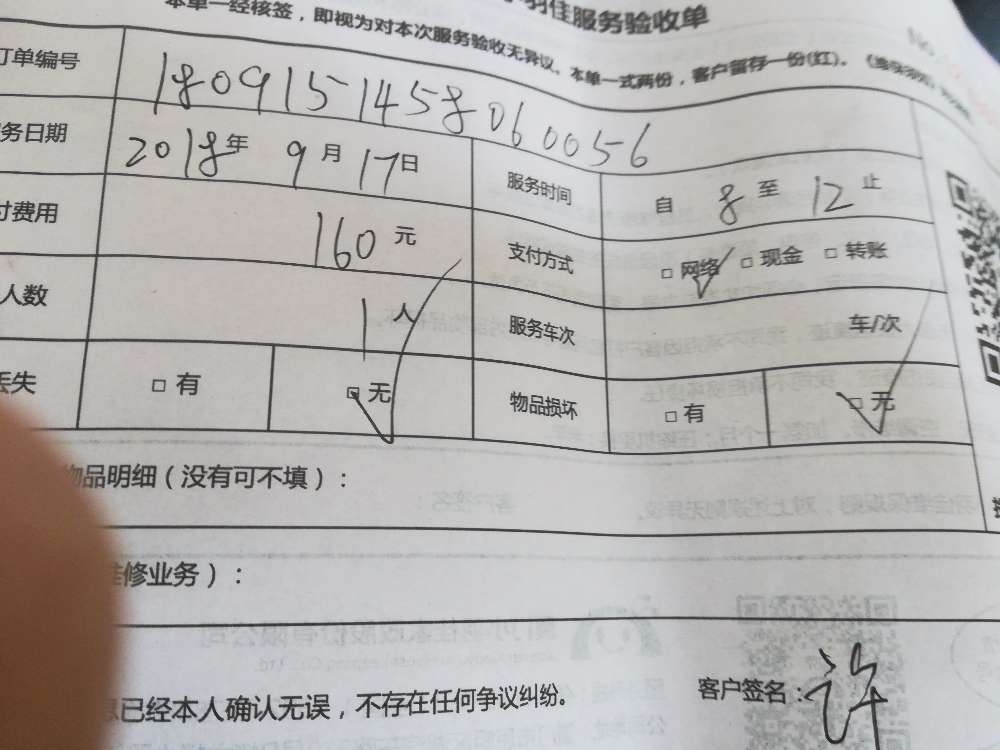 羽佳服务验收单
本单一经核签，即视为对本次服务验收无异议。本单一式两份，客户留存一份(红)。
订单编号 180915145806 0056
服务日期 2018年 9月 17日 服务时间 自 8 至 12 止
付费用 160元 支付方式 □网络 □现金 □转账
人数 1人 服务车次 车/次
丢失 □有 □无 物品损坏 □有 □无
物品明细（没有可不填）：
维修业务）：
息已经本人确认无误，不存在任何争议纠纷。 客户签名：许